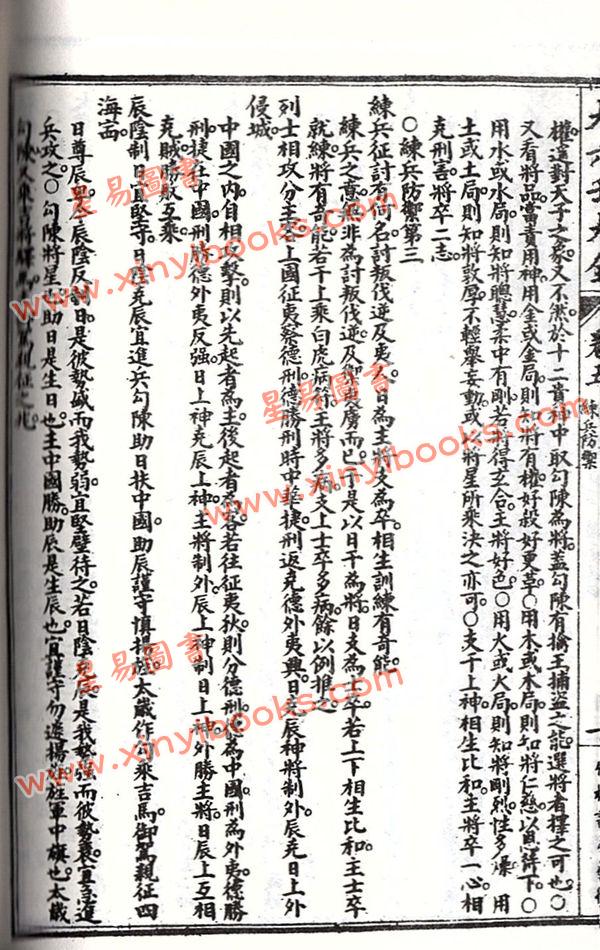 權違對天子之象又不然於十二貴神中取勾陳為將蓋勾陳有擒王捕盜之能選將者擇之可也○
又看將品當責用神用金或金局則知將有權好殺好更革○用木或木局則知將仁慈以恩待下○
用水或水局則知將聰慧柔中有剛若得玄合主將好色○用火或火局則知將剛烈性多燥用
土或土局則知將敦厚不輕舉妄動或以將星所乘決之亦可○支干上神相生比和主將卒一心相
克刑害將卒二志
○練兵防禦第三
練兵征討有何名討叛伐逆及夷人日為主將支為卒相生訓練有奇能
練兵之意無非為討叛伐逆及禦夷虜而已于是以日干為將日支為士卒若上下相生比和主士卒
就練將有奇能若干上乘白虎病符主將多病支上士卒多病餘以例推之
列士相攻分主客上國征夷察德刑德勝刑時中華捷刑返克德外夷興日克辰神將制外辰克日上外
侵城
中國之內自相攻擊則以先起者為主後起者為客若往征夷狄則分德刑德為中國刑為外夷德勝
刑捷在中國刑勝德外夷反强日上神克辰上神主將制外辰上神制日上神外勝主將日辰上互相
克賊
辰陰制日宜堅守日陰克辰宜進兵勾陳助日扶中國助辰謹守慎揚旌太歲作勾乘吉馬御駕親征四
海
日尊辰卑若辰陰反制日是彼勢盛而我勢弱宜堅壁待之若日陰克辰是我勢强而彼勢衰宜急進
兵攻之○勾陳將星助日是生日也主中國勝助辰是生辰也宜謹守勿遽揚旌旌軍中旗也太歲
勾陳又乘吉將驛馬駕親征之兆
卷五
練兵防禦
星易圖書
www.xinyibooks.com
星易圖書
www.xinyibooks.com
星易圖書
www.xinyibooks.com